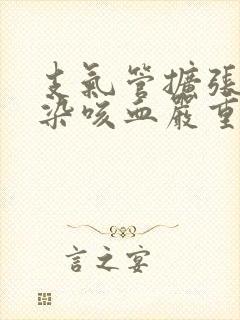 支氣管擴張
染咳血嚴重
言之宴